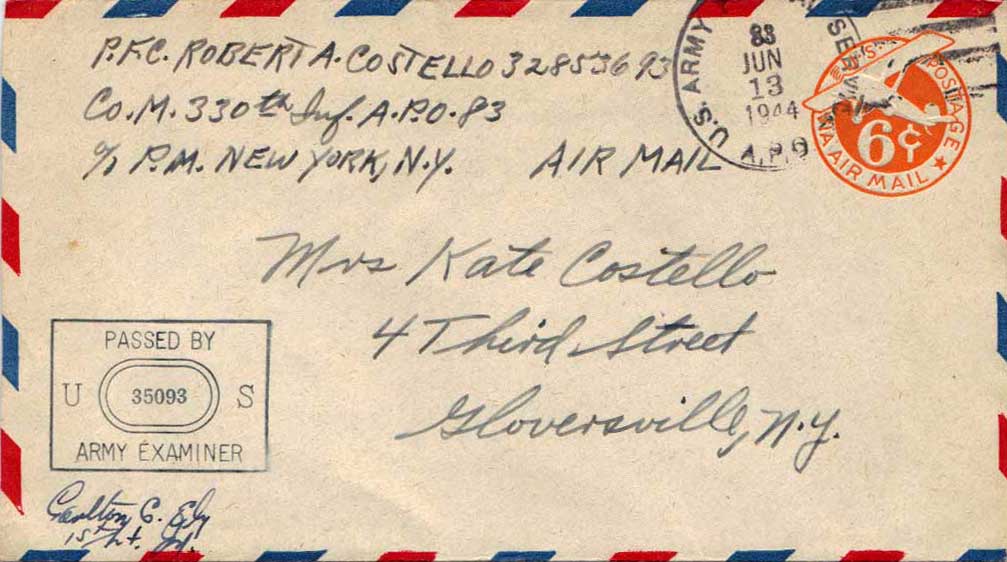 P.F.C. ROBERT A. COSTELLO 32853693
Co. M. 330th Inf. A.P.O. 83
c/o P.M. NEW YORK, N.Y. AIR MAIL
U.S. ARMY
SERVICE
83
JUN
13
1944
A.P.O
U.S. POSTAGE
6¢
VIA AIR MAIL
Mrs Kate Costello
4 Third Street
Gloversville, N.Y.
PASSED BY
U 35093 S
ARMY EXAMINER
Carlton C. Ely
1st Lt. Inf.